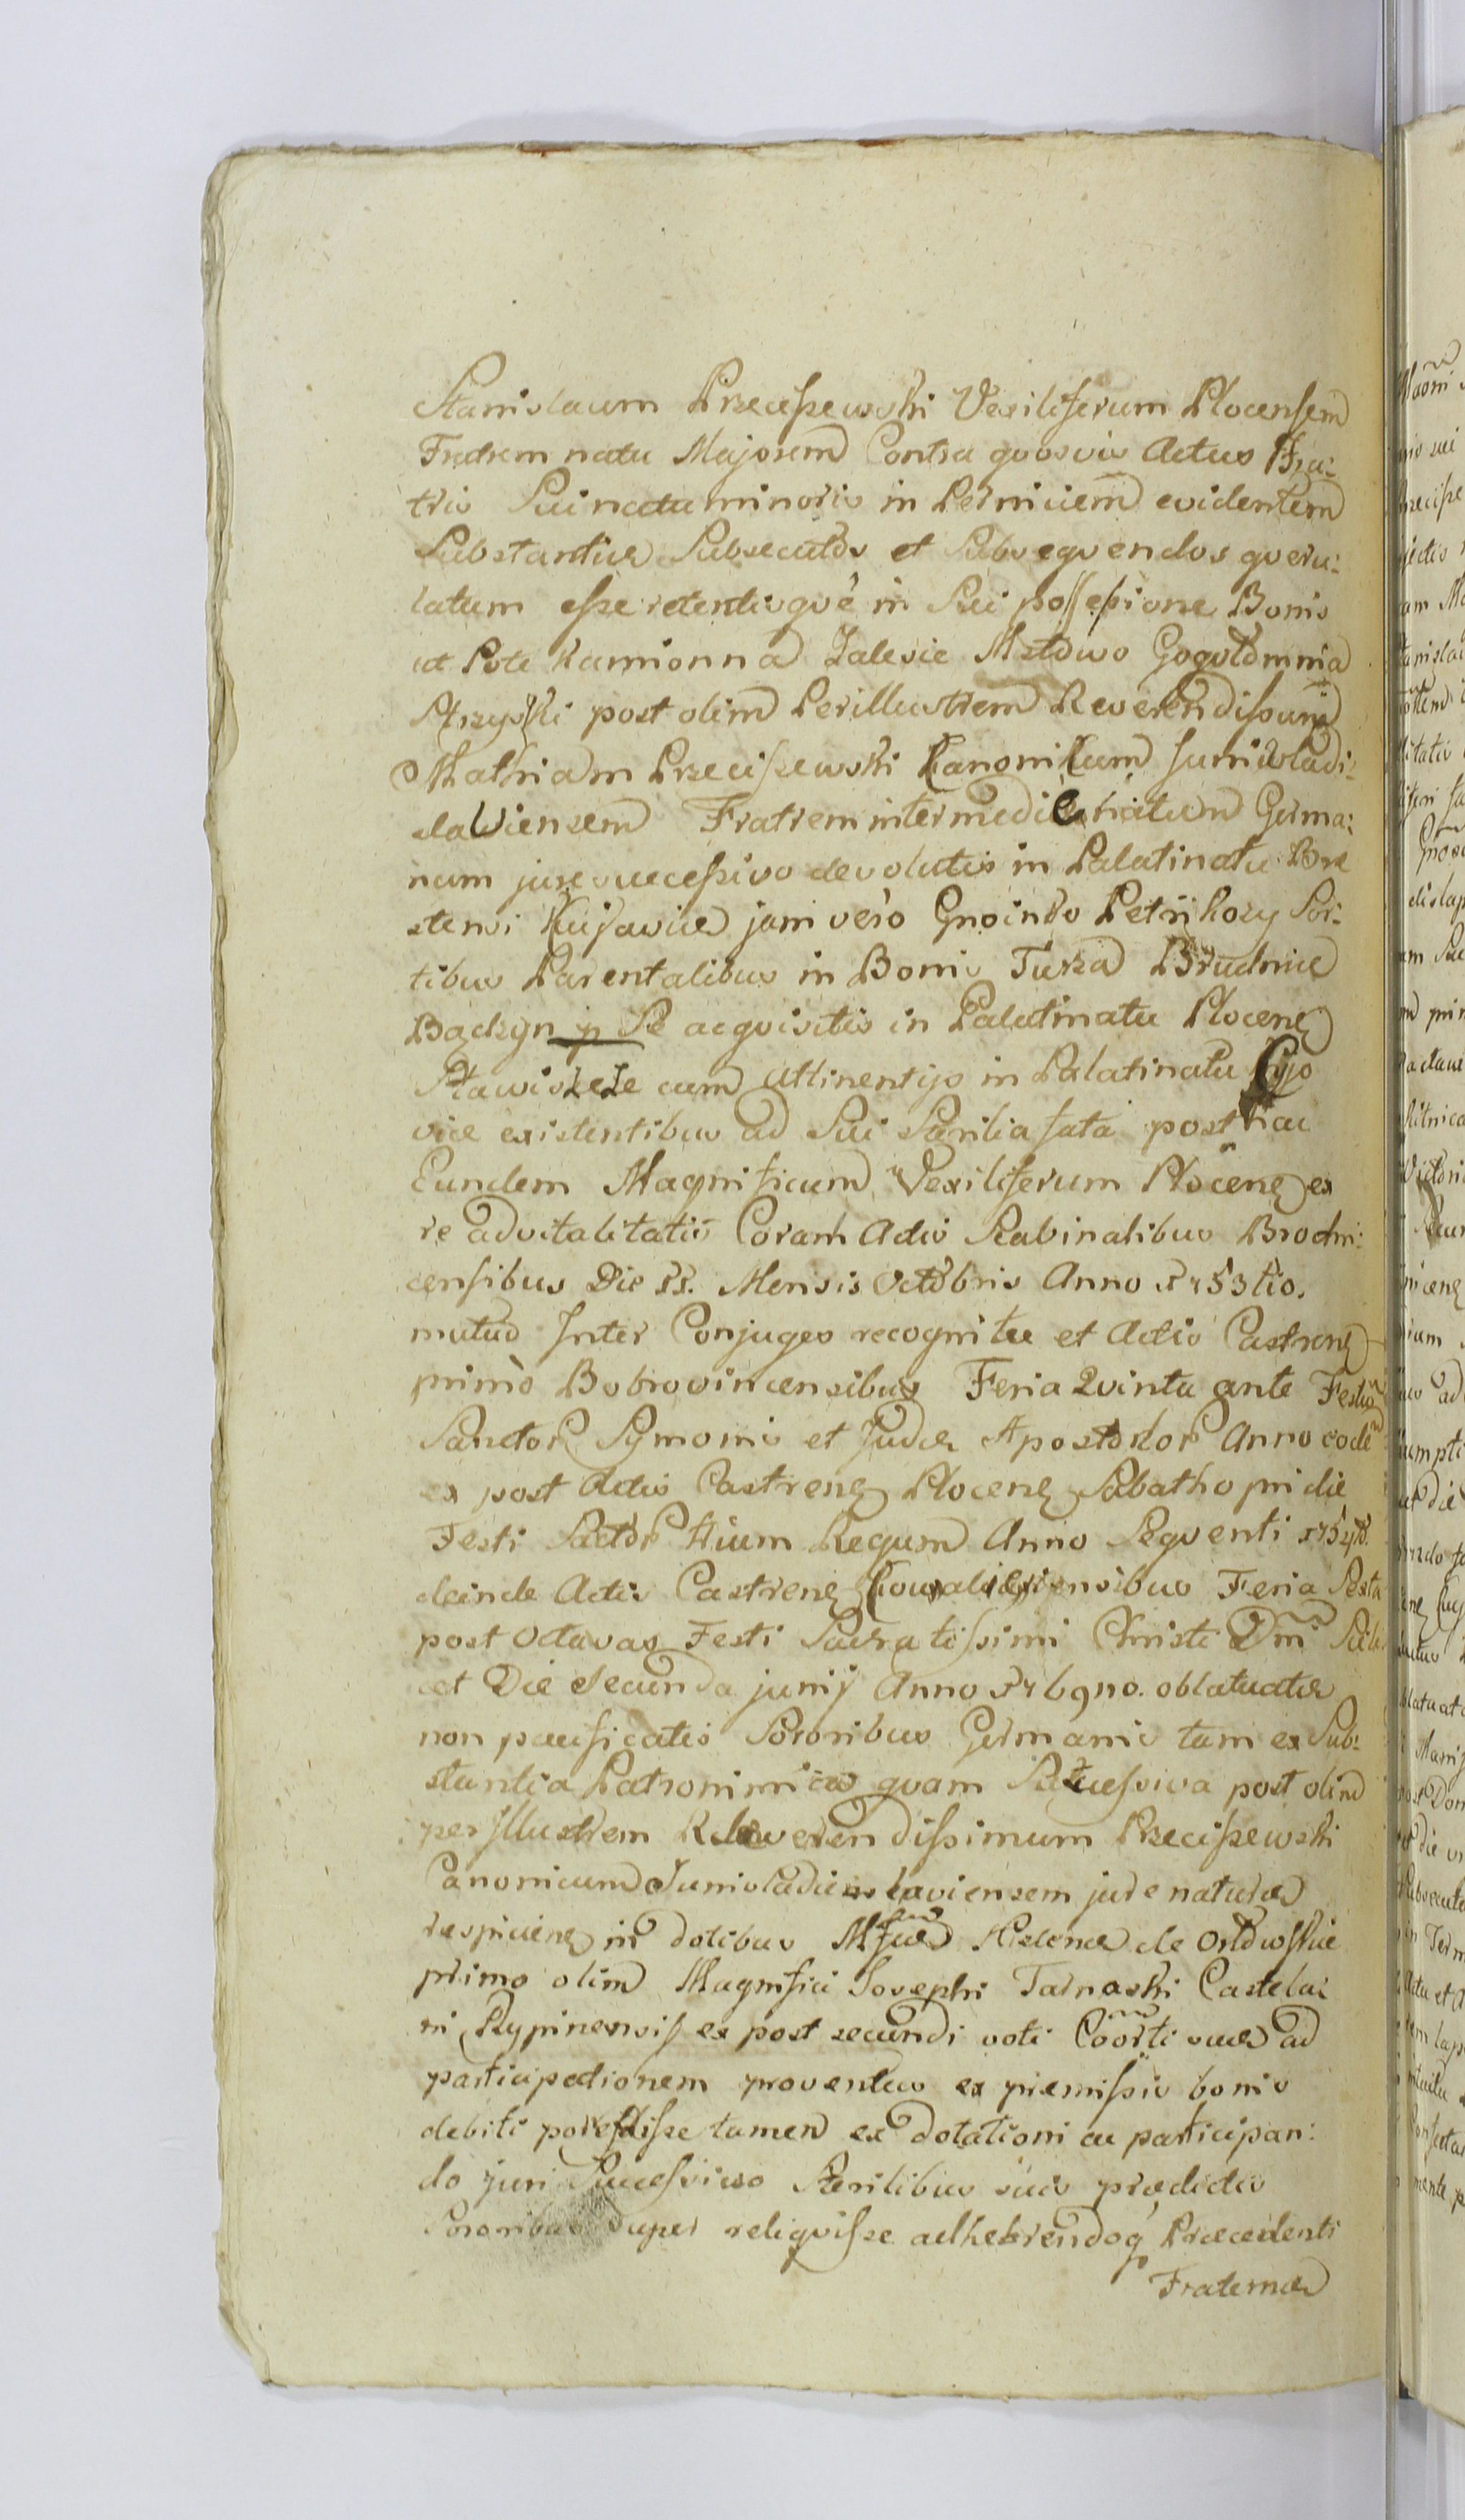 Stanislaum Przeciszewski Vexiliferum Plocensem
Fratrem natu Majorem Contra qvosvis Actus Fra:
tris Sui natu minoris in Perniciem evidentem
Substantiæ Subsecutos et Subseqvendos qveru:
latum esse retentisqvè in Sui possessione Bonis
ut Pote Kamionna Zalesie
Strzyski post olim Perillustrem Reverendissum
Mathiam Przeciszewski Kanonikum Juniwladi:
slaviensem Fratrem intermedie natum Germa:
num jure successivo devolutis in Palatinatu Brze
stensi Kujaviæ jam vero Gnoinko Petrikozy Sor:
tibus Parentalibus in Bonis Turza Brudnice
p Se acqvisitis in Palatinatu Plocenę
cum Attinentijs in Palatinatu
viæ existentibus ad Sui Sterilia fata post hac
Eundem Magnificum Vexiliferum Plocenę ex
re advitalitatis Coram Actis Scabinalibus Brodni:
censibus Die 11. Mensis Octobris Anno 1753tio.
mutuo Inter Conjuges recognitæ et Actis Castrenę
primò Bobrovincensibus Feria Qvinta ante Festū
Sanctor Symonis et Judæ Apostolor Anno eodē
ex post Actis Castrenę Plocenę Sabatho pridie
Festi Sactor trium Regum Anno Seqventi 1754to.
deinde Actis Castrenę Kowaliensibus Feria Sexta
post Octavas Festi Sacratissimi Christi Dni Scili
cet Die secunda junij Anno 1769no. oblatuatæ
non pacificatis Sororibus Germanis tam ex Sub:
stantia Patronimica qvam Successiva post olim
per Jllustrem Reverendissimum Przeciszewski
Canonicum Juniwladislaviensem jure naturæ
respicienę in dotibus Mfcæ Helenæ de Orłowskie
primo olim Magnifici Josephi Tarnaski Castela:
ni Rypinensis ex post secundi voti Coorti suæ ad
participationem proventus ex premissis bonis
debiti tamen ex dotationi ac participan:
do juri Successivo Sterilibus suis prædictis
Sororibus super reliqvisse adherendoq Præcedenti
Fraternæ